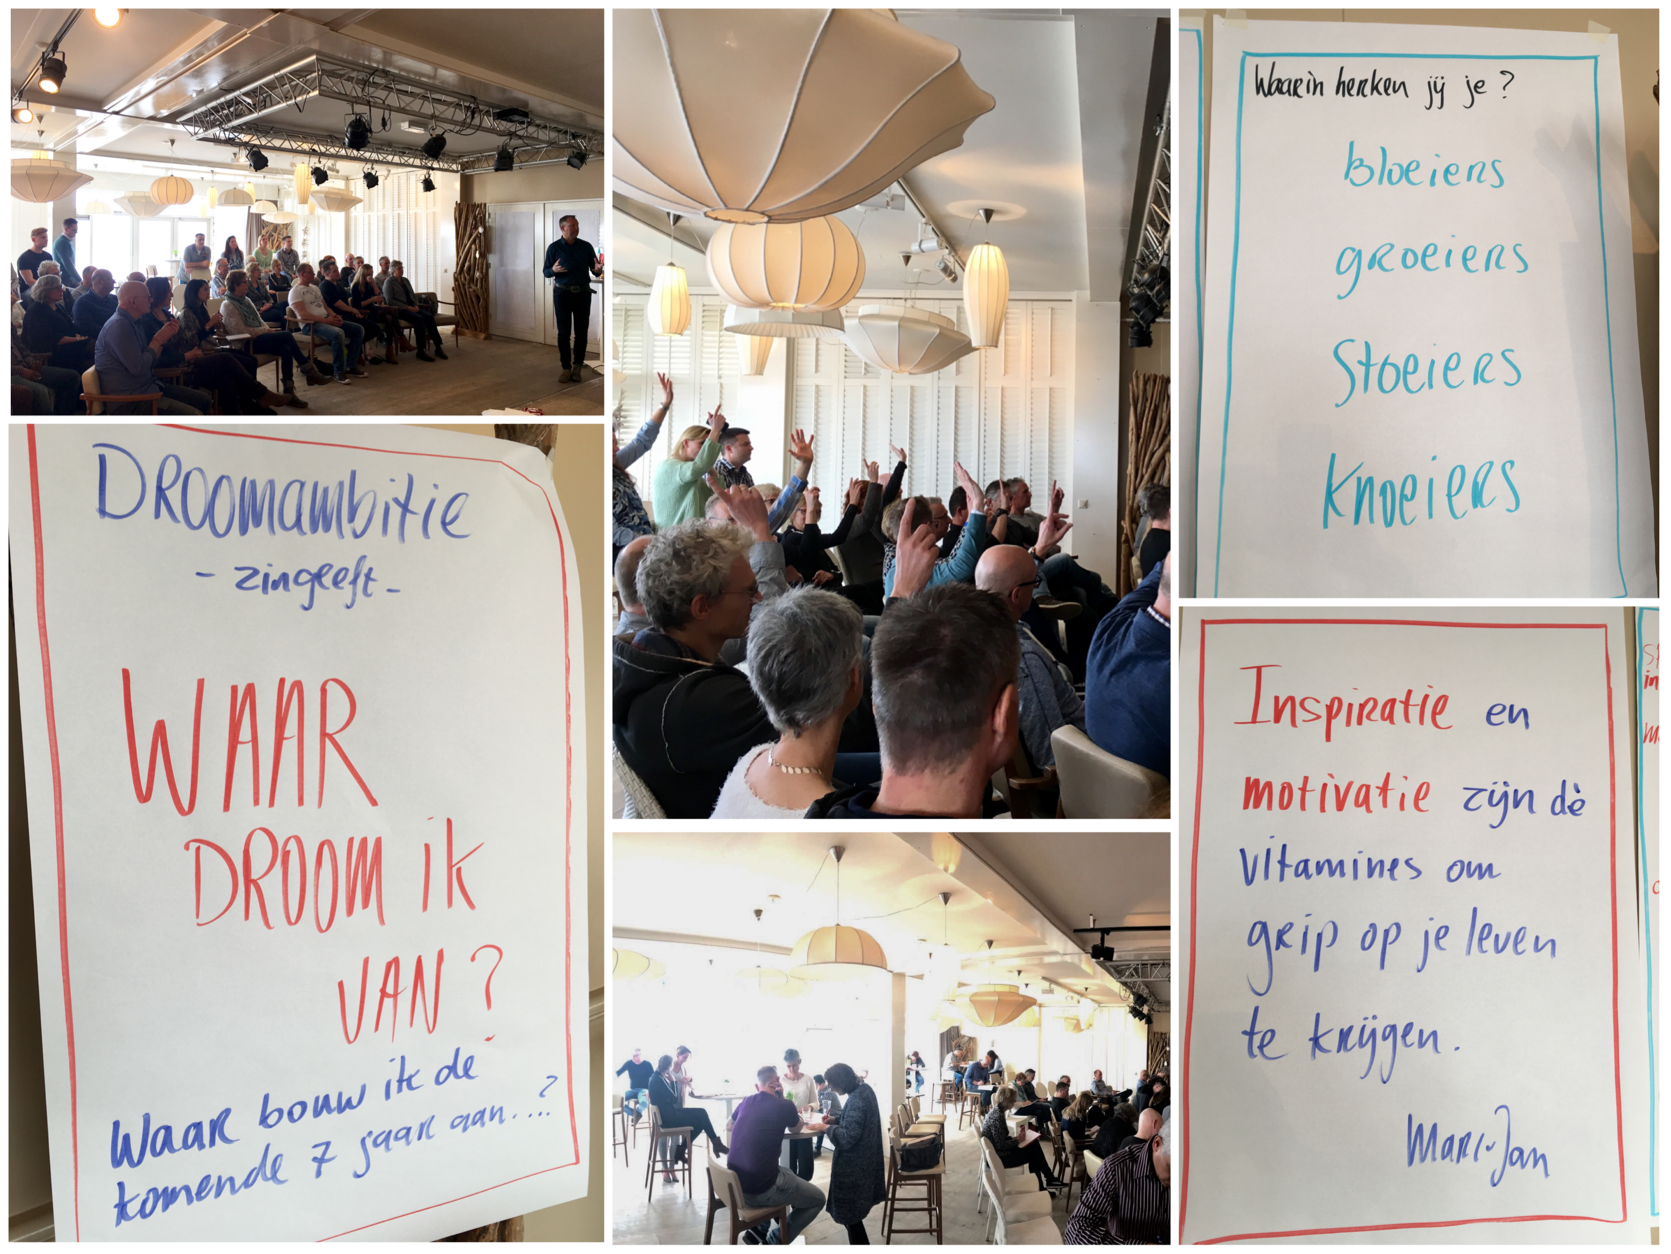 DROOMAMBITIE
- zingeeft -
WAAR
DROOM ik
VAN?
Waar bouw ik de
komende 7 jaar aan....?
Waarin herken jij je?
bloeiers
groeiers
Stoeiers
knoeiers
Inspiratie en
motivatie zijn dè
vitamines om
grip op je leven
te krijgen.